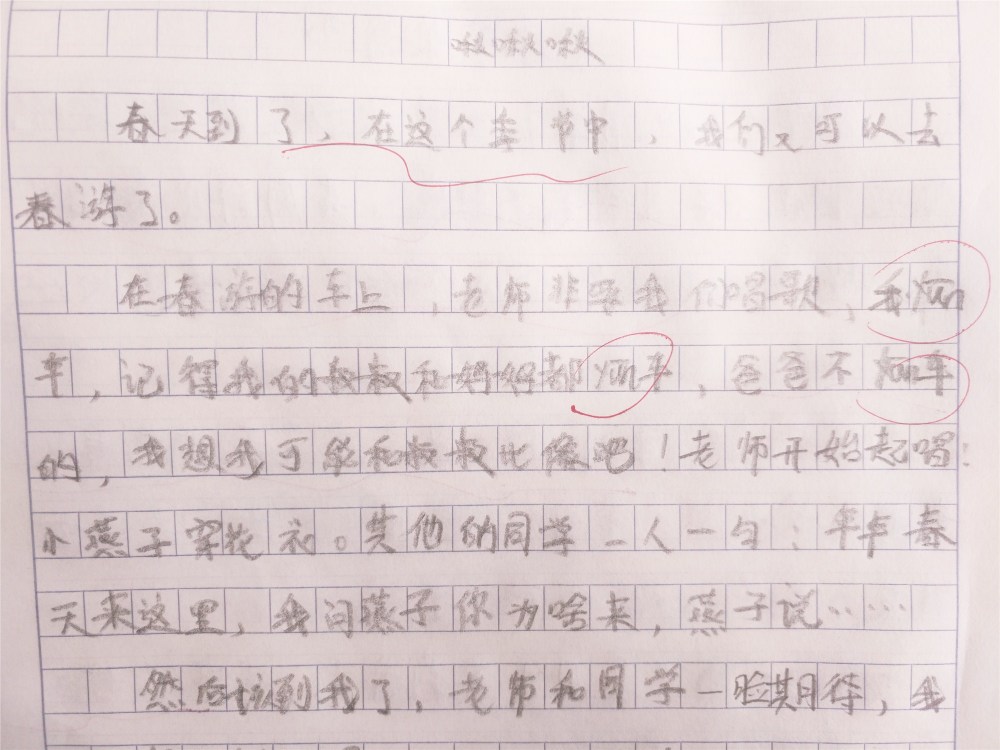 啾啾啾
春天到了，在这个季节中，我们又可以去
春游了。
在春游的车上，老师非要我们唱歌，我
车，记得我的叔叔和妈妈都车，爸爸不车
的，我想我可能和叔叔比像吧！老师开始起唱：
小燕子穿花衣。其他的同学一人一句：年年春
天来这里，我问燕子你为啥来，燕子说……
然后该到我了，老师和同学一脸期待，我